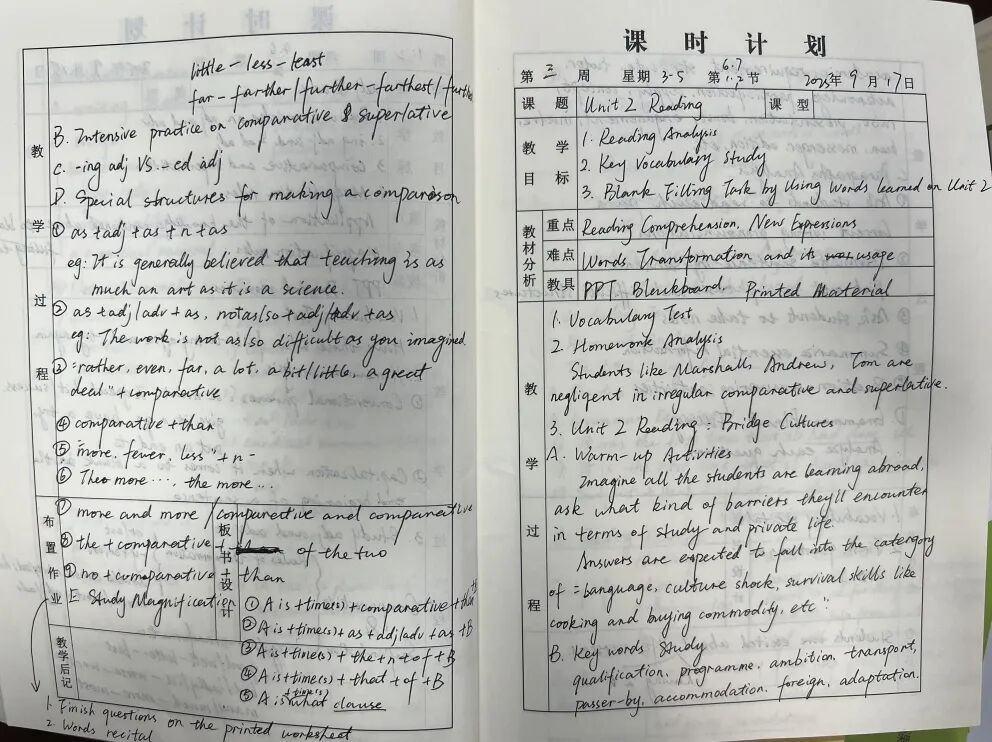 little-less-least
far-farther/further-farthest/furthe
B. Intensive practice on comparative & superlative
C. -ing adj VS. -ed adj
D. Special structures for making a comparison
① as+adj+as+n+as
eg: It is generally believed that teaching is as
much an art as it is a science.
② as+adj/adv+as, notas/so+adj/adv+as
eg: The work is not as/so difficult as you imagined.
③ "rather, even, far, a lot, a bit/little, a great
deal"+comparative
④ comparative+than
⑤ "more, fewer, less"+n-
⑥ The more..., the more...
⑦ more and more /comparective and companative
⑧ the+comparative+ of the two
⑨ no+comparative than
E Study Magnification
① A is+time(s)+comparative+than
② A is+time(s)+as+adj/adv+as+B
③ A is+time(s)+the+n+of+B
④ A is+time(s)+that+of+B
⑤ A is+time(s)+what clause
教学过程
布置作业
板书设计
教学后记
1. Finish questions on the printed worksheet
2. Words recital
课时计划
第三周 星期3-5 第6.7 1.2节 2025年9月17日
课题 Unit 2 Reading 课型
教学目标
1. Reading Analysis
2. Key Vocabulary Study
3. Blank Filling Task by Using Words learned on Unit 2
教材分析
重点 Reading Comprehension, New Expressions
难点 Words Transformation and its usage
教具 PPT. Blackboard. Printed Material
教学过程
1. Vocabulary Test
2. Homework Analysis
Students like Marshalls Andrew, Tom are
negligent in irregular comparative and superlative.
3. Unit 2 Reading: Bridge Cultures
A. Warm-up Activities
Imagine all the students are learning abroad,
ask what kind of barriers they'll encounter
in terms of study and private life
Answers are expected to fall into the catergory
of "language, culture shock, survival skills like
cooking and buying commodity, etc".
B. Key words Study
qualification, programme, ambition, transport,
passer-by, accommodation, foreign, adaptation.